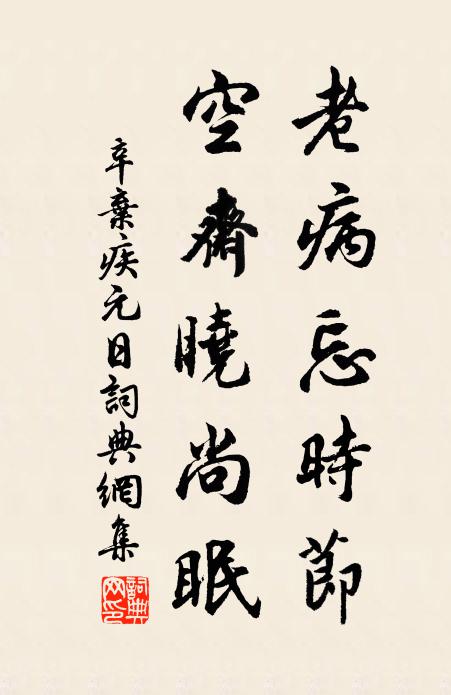 老病忘時節
空齋曉尚眠
辛棄疾元日詞典網集
詞典網印